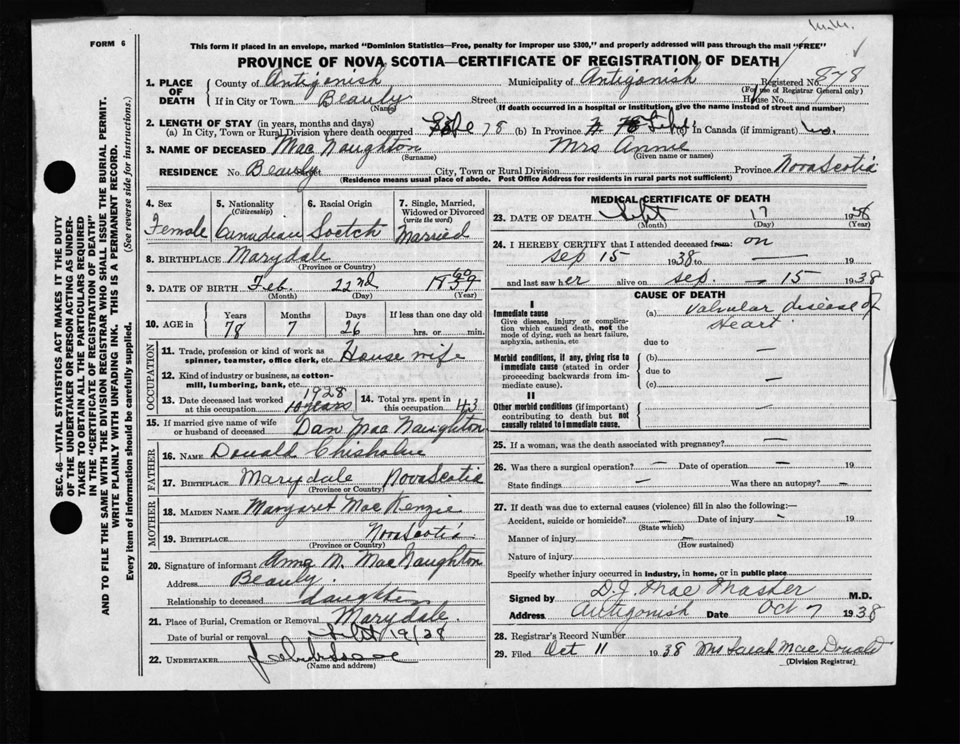 M.M.
FORM 6
This form if placed in an envelope, marked "Dominion Statistics—Free, penalty for improper use $300," and properly addressed will pass through the mail "FREE"
PROVINCE OF NOVA SCOTIA—CERTIFICATE OF REGISTRATION OF DEATH
SEC. 46 VITAL STATISTICS ACT MAKES IT THE DUTY
OF THE UNDERTAKER OR PERSON ACTING AS UNDER-
TAKER TO OBTAIN ALL THE PARTICULARS REQUIRED
IN THE "CERTIFICATE OF REGISTRATION OF DEATH"
AND TO FILE THE SAME WITH THE DIVISION REGISTRAR WHO SHALL ISSUE THE BURIAL PERMIT.
WRITE PLAINLY WITH UNFADING INK. THIS IS A PERMANENT RECORD.
Every item of information should be carefully supplied. (See reverse side for instructions.)
1. PLACE OF DEATH County of Antigonish Municipality of Antigonish Registered No. 878
(For use of Registrar General only)
If in City or Town Beauly Street House No.
(Name) (If death occurred in a hospital or institution, give the name instead of street and number)
2. LENGTH OF STAY (in years, months and days)
(a) In City, Town or Rural Division where death occurred 78 (b) In Province (c) In Canada (if immigrant)
3. NAME OF DECEASED Mac Naughton Mrs Annie
(Surname) (Given name or names)
RESIDENCE No. Beauly City, Town or Rural Division Province Nova Scotia
(Residence means usual place of abode. Post Office Address for residents in rural parts not sufficient)
4. Sex
Female
5. Nationality
(Citizenship)
Canadian
6. Racial Origin
Scotch
7. Single, Married,
Widowed or Divorced
(write the word)
Married
8. BIRTHPLACE Marydale
(Province or Country)
9. DATE OF BIRTH Feb. 22nd 18
(Month) (Day) (Year)
10. AGE in Years Months Days If less than one day old
78 7 26 hrs. or min.
OCCUPATION
11. Trade, profession or kind of work as
spinner, teamster, office clerk, etc. House wife
12. Kind of industry or business, as cotton-
mill, lumbering, bank, etc.
13. Date deceased last worked
at this occupation 1928
10 years
14. Total yrs. spent in
this occupation 43
15. If married give name of wife
or husband of deceased Dan Mac Naughton
FATHER
16. NAME Donald Chisholm
17. BIRTHPLACE Marydale Nova Scotia
(Province or Country)
MOTHER
18. MAIDEN NAME Margaret Mac Kenzie
19. BIRTHPLACE Nova Scotia
(Province or Country)
20. Signature of informant Anna M. Mac Naughton
Address Beauly.
Relationship to deceased daughter
21. Place of Burial, Cremation or Removal Marydale.
Date of burial or removal Sept 19/38
22. UNDERTAKER
(Name and address)
MEDICAL CERTIFICATE OF DEATH
23. DATE OF DEATH Sept 17 1938
(Month) (Day) (Year)
24. I HEREBY CERTIFY that I attended deceased from: on
Sep 15 1938 to —
and last saw her alive on Sep. — 15 1938
CAUSE OF DEATH
I
Immediate cause
Give disease, injury or complica-
tion which caused death, not the
mode of dying, such as heart failure,
asphyxia, asthenia, etc
(a) Valvular disease of
Heart
due to
Morbid conditions, if any, giving rise to
immediate cause (stated in order
proceeding backwards from im-
mediate cause).
(b) —
due to
(c) —
II
Other morbid conditions (if important)
contributing to death but not
causally related to immediate cause.
25. If a woman, was the death associated with pregnancy? —
26. Was there a surgical operation? — Date of operation — 19
State findings — Was there an autopsy? —
27. If death was due to external causes (violence) fill in also the following:—
Accident, suicide or homicide? — Date of injury — 19
(State which)
Manner of injury —
(How sustained)
Nature of injury
Specify whether injury occurred in industry, in home, or in public place
Signed by D.J. Mac Master M.D.
Address Antigonish Date Oct 7 1938
28. Registrar's Record Number
29. Filed Oct 11 1938 Mrs Sarah Mac Donald
(Division Registrar)